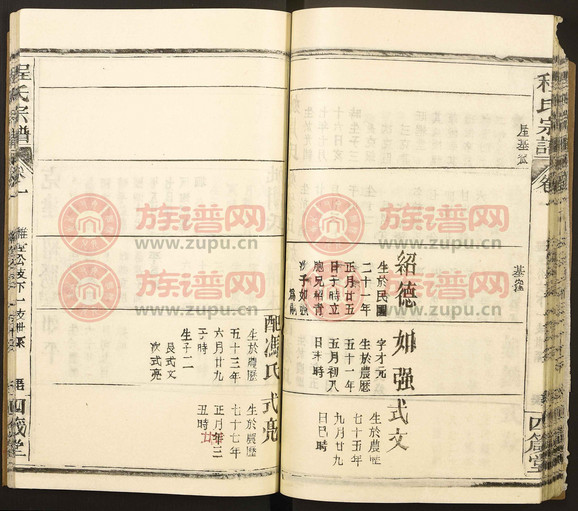 程氏宗譜
卷
屋基
墓
四箴堂
紹德
生於民國
二十一年
五月廿五
日子時立
胞兄紹青
次子如强
爲嗣
如强
字才元
生於農歷
五十一年
五月初八
日丑時
式文
生於農歷
七十五年
九月廿九
日巳時
配馮氏
生於農歷
五十三年
六月廿九
子時
生子二
長式文
次式亮
式亮
生於農歷
七十七年
正月廿三
丑時
程氏宗譜
卷一
維座公支下一支世系
四箴堂
族谱网
www.zupu.cn
族谱网
www.zupu.cn
族谱网
www.zupu.cn
族谱网
www.zupu.cn